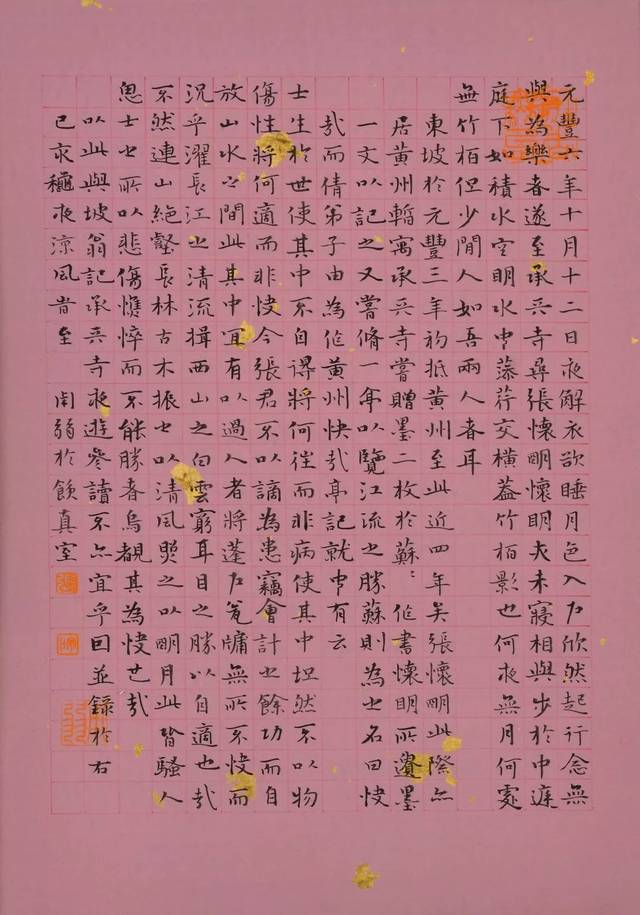 元豐六年十月十二日夜解衣欲睡月色入戶欣然起行念無
與為樂者遂至承天寺尋張懷明懷明夫未寢相與步於中庭
庭下如積水空明水中藻荇交橫蓋竹柏影也何夜無月何處
無竹柏但少閒人如吾兩人者耳
東坡於元豐三年初抵黃州至此近四年矣張懷明此際亦
居黃州暫寓承天寺嘗贈墨二枚於蘇〻作書懷明所贈墨
一文以記之又嘗脩一亭以覽江流之勝蘇則為之名曰快
哉而倩弟子由為作黃州快哉亭記就中有云
士生於世使其中不自得將何往而非病使其中坦然不以物
傷性將何適而非快今張君不以謫為患竊會計之餘功而自
放山水之間此其中宜有以過人者將蓬戶瓮牖無所不快而
況乎濯長江之清流揖西山之白雲窮耳目之勝以自適也哉
不然連山絕壑長林古木振之以清風照之以明月此皆騷人
思士之所以悲傷憔悴而不能勝者烏覩其為快也哉
以此與坡翁記承天寺夜遊參讀不亦宜乎因並錄於右
己亥穐夜涼風昔至 閑弱於飲真室